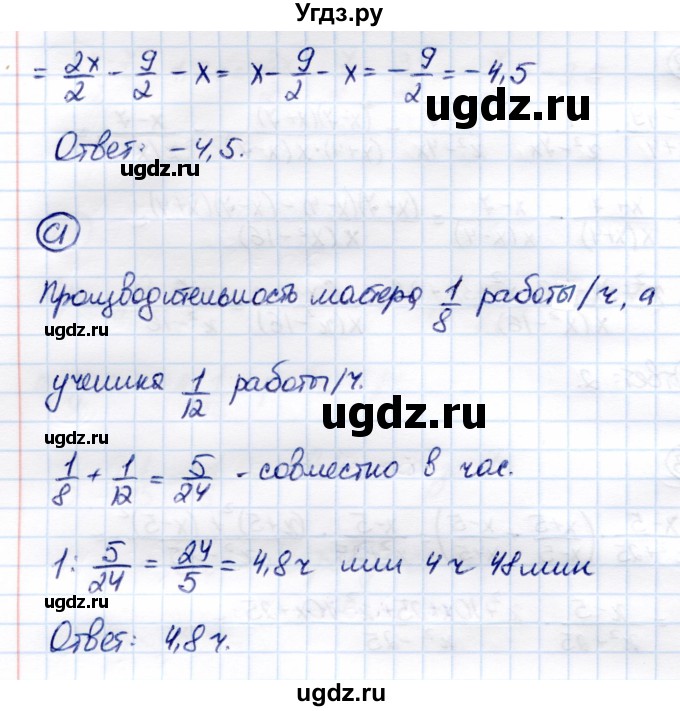 Угдз.ру
= 2x/2 - 9/2 - x = x - 9/2 - x = - 9/2 = -4,5
ugdz.ru
Ответ: -4,5.
ugdz.ru
C1
Производительность мастера 1/8 работы/ч, а
ugdz.ru
ученика 1/12 работы/ч.
ugdz.ru
ugdz.ru
1/8 + 1/12 = 5/24 - совместно в час.
1 : 5/24 = 24/5 = 4,8 ч или 4 ч 48 мин
ugdz.ru
ugdz.ru
Ответ: 4,8 ч.
ugdz.ru